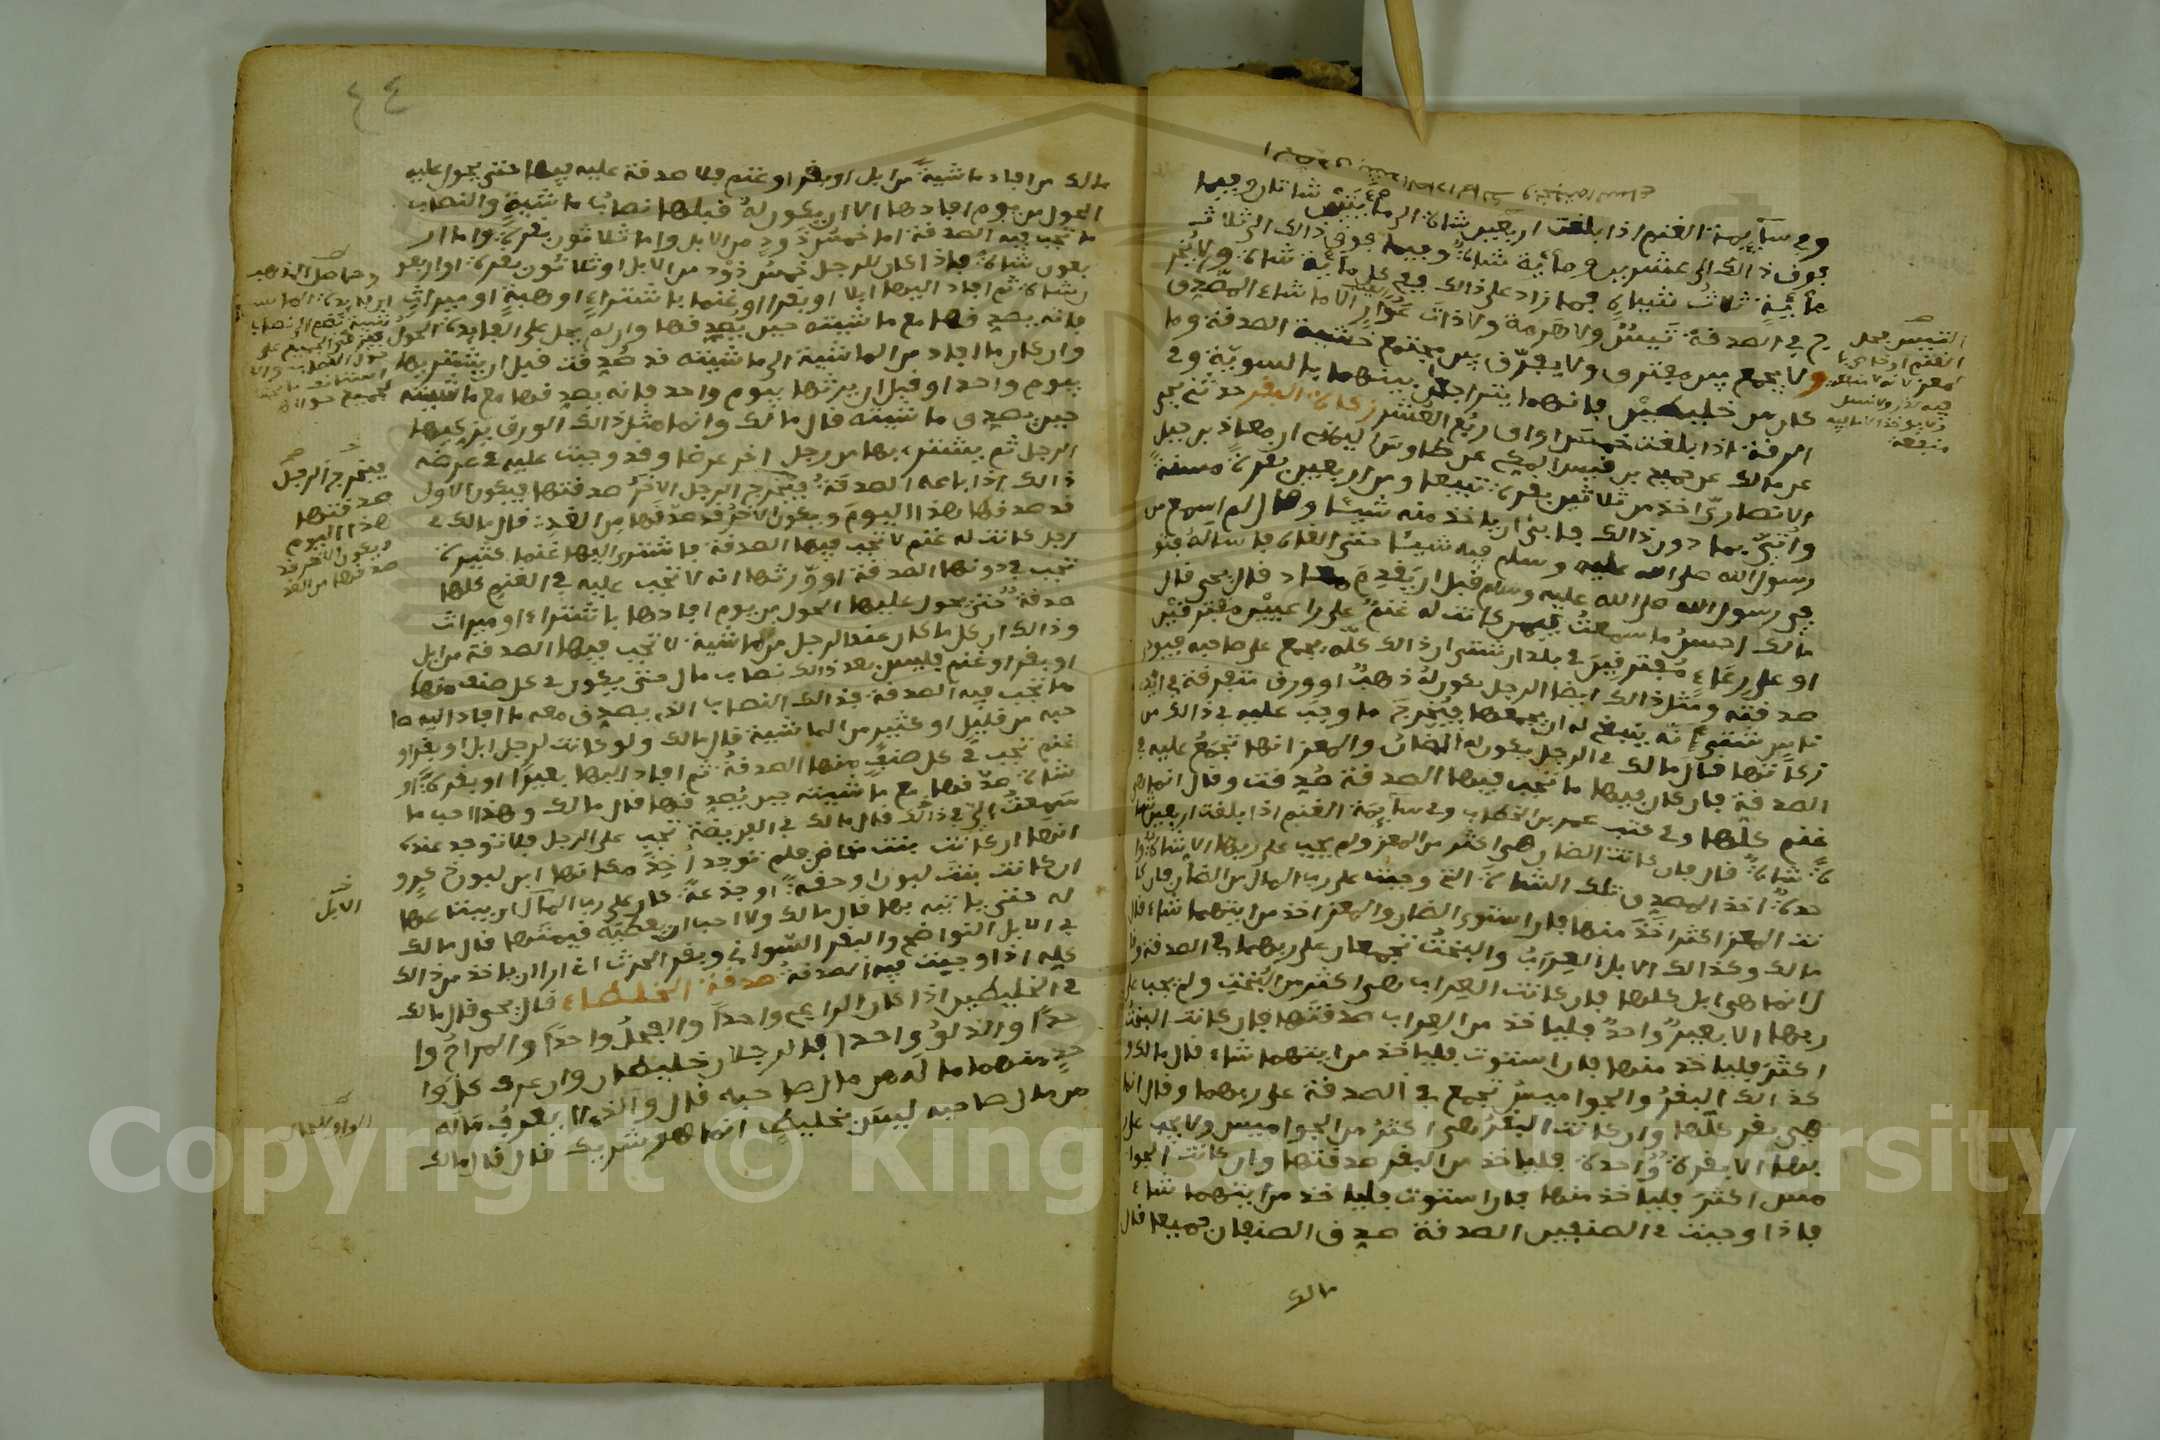 وفي سآيمة الغنم اذا بلغت اربعين شاة الى
مأيتين شاتان وفيما
فوق ذالك الى عشرين ومأية شاة وفيما فوق ذالك الى ثلاث
مأية ثلاث شياه فما زاد على ذالك ففي كل مأية شاة ولا يخر
ج في الصدقة تيس ولا هرمة ولا ذات عوار الا ما شاء المصدق
ولا يجمع بين مفترق ولا يفرق بين مجتمع خشية الصدقة وما
كان من خليطين فانهما يتراجعان بينهما بالسوية وفي
الرقة اذا بلغت خمس اواق ربع العشر زكاة البقر حدثني يحي
عن مالك عن حميد بن قيس المكي عن طاوس اليماني ان معاذ بن جبل
الانصاري اخذ من ثلاثين بقرة تبيعا ومن اربعين بقرة مسنة
واتي بما دون ذالك فابى ان ياخذ منه شيئا وقال لم اسمع من
رسول الله صلى الله عليه وسلم فيه شيئا حتى القاه فاسأله فتو
في رسول الله صلى الله عليه وسلم قبل ان يقدم معاد قال يحي قال
مالك احسن ما سمعت فيمن كانت له غنم على راعيين مفترقين
او على رعاء مفترقين في بلدان شتى ان ذالك كله يجمع على صاحبه فيود
صدقته ومثل ذالك ايضا الرجل يكون له ذهب او ورق متفرقة في ايد
ي ناس شتى انه ينبغي له ان يجمعها فيخرج ما وجب عليه في ذالك من
زكاتها قال مالك في الرجل يكون له الضان والمعز انها تجمع عليه في
الصدقة فان كان فيها ما تجب فيها الصدقة صدقت وقال انما هي
غنم كلها وفي كتب عمر بن الخطاب وفي سآيمة الغنم اذا بلغت اربعين شا
ة شاة قال فان كانت الضان هي اكثر من المعز ولم يجب على ربها الا شاة وا
حدة اخذ المصدق تلك الشاة التي وجبت على رب المال من الضان فان كا
نت المعز اكثر اخذ منها فان استوى الضان والمعز اخذ من ايتهما شاء قال
مالك وكذالك الابل العراب والبخت تجمعان على ربهما في الصدقة وقا
ل انما هي ابل كلها فان كانت العراب هي اكثر من البخت ولم يجب على
ربها الا بعير واحد فلياخذ من العراب صدقتها فان كانت البخت
اكثر فلياخذ منها فان استوت فلياخذ من ايتهما شاء قال مالك و
كذالك البقر والجواميس تجمع في الصدقة على ربهما وقال انما
هي بقر كلها وان كانت البقر هي اكثر من الجواميس ولا يجب على
ربها الا بقرة واحدة فلياخذ من البقر صدقتها وان كانت الجوا
ميس اكثر فلياخذ منها فان استوت فلياخذ من ايتهما شاء
فاذا وجبت في الصنفين الصدقة صدق الصنفان جميعا قال
مالك
التيس فحل
الغنم
٤٤
مالك من افاد ماشية من ابل او بقر او غنم فلا صدقة عليه فيها حتى يحول عليه
الحول من يوم افادها الا ان يكون له قبلها نصاب ماشية والنصاب
ما تجب فيه الصدقة اما خمس ذود من الابل واما ثلاثون بقرة واما ار
بعون شاة فاذا كان للرجل خمس ذود من الابل او ثلاثون بقرة او اربعو
ن شاة ثم افاد اليها ابلا او بقرا او غنما باشتراء او هبة او ميراث
فانه يصدقها مع ماشيته حين يصدقها وان لم يحل على الفايدة الحول
وان كان ما افاد من الماشية الى ماشيته قد صدقت قبل ان يشتريها
بيوم واحد او قبل ان يرثها بيوم واحد فانه يصدقها مع ماشيته
حين يصدق ماشيته قال مالك وانما مثل ذالك الورق يزكيها
الرجل ثم يشتري بها من رجل اخر عرضا وقد وجبت عليه في عرضه
ذالك اذا باعه الصدقة فيخرج الرجل الاخر صدقتها فيكون الاول
قد صدقها هذا اليوم ويكون الاخر قد صدقها من الغد قال مالك في
رجل كانت له غنم لا تجب فيها الصدقة فاشترى اليها غنما كثيرة
تجب في دونها الصدقة او ورثها انه لا تجب عليه في الغنم كلها
صدقة حتى يحول عليها الحول من يوم افادها باشتراء او ميراث
وذالك ان كل ما كان عند الرجل من ماشية لا تجب فيها الصدقة من ابل
او بقر او غنم فليس يعد ذالك نصاب مال حتى يكون في كل صنف منها
ما تجب فيه الصدقة فذالك النصاب الذي يصدق معه ما افاد اليه صا
حبه من قليل او كثير من الماشية قال مالك ولو كانت لرجل ابل او بقر او
غنم تجب في كل صنف منها الصدقة ثم افاد اليها بعيرا او بقرة او
شاة صدقها مع ماشيته حين يصدقها قال مالك وهذا احب ما
سمعت الي في ذالك قال مالك في الفريضة تجب على الرجل فلا توجد عنده
انها ان كانت بنت مخاض فلم توجد اخذ مكانها ابن لبون ذكر و
ان كانت بنت لبون او حقة او جذعة كان على رب المال ان يبتاعها
له حتى ياتيه بها قال مالك ولا احب ان يعطيه قيمتها قال مالك
في الابل النواضح والبقر السواني وبقر الحرث اني ارى ان ياخذ من ذالك
كله اذا وجبت فيه الصدقة صدقة الخلطاء قال يحي قال مالك
في الخليطين اذا كان الراعي واحدا والفحل واحدا والمراح وا
حدا والدلو واحدا فالرجلان خليطان وان عرف كل وا
حد منهما ماله من مال صاحبه قال والذي لا يعرف ماله
من مال صاحبه ليس بخليط انما هو شريك قال قال مالك
فيخرج الرجل
صدقتها
هذا اليوم
ويكون الاخر قد
صدقها من الغد
الابل
Copyright © King Saud University